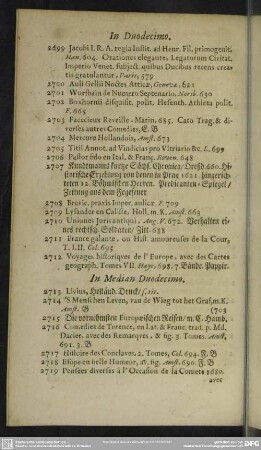 In Duodecimo.
2699 Jacobi I. R. A. regia Instit. ad Henr. Fil. primogenit.
Han. 604. Orationes elegantes Legatorum Civitat.
Imperio Venet. subject. quibus Ducibus recens crea-
tis gratulantur. Paris. 579
2700 Auli Gellii Noctes Atticæ, Geneva. 621
2701 Wurfbain de Numero Septenario, Norib. 630
2702 Boxhornii disquisit. polit. Hesenth. Athleta polit.
F. 665
2703 Facecieux Reveille-Matin. 685. Cato Trag. & di-
verses autres Comedies, E. B
2704 Mercure Hollandois, Amst. 673
2705 Titii Annot. ad Vindicias pro Vitriario &c. L. 699
2706 Pastor fido en Ital. & Franç. Rouen. 648
2707 Rundemanns kurtze Sächs. Chronica, Dreßd. 660. Hi-
storische Erzählung von denen in Prag 1621. hingerich-
teten 12. Böhmischen Herren. Predicanten-Spiegel/
Zeitung aus dem Fegefeuer
2708 Brevic. praxis Imper. aulicæ F. 709
2709 Lysander en Caliste. Holl. m. K. Amst. 663
2710 Uniones Juris antiqui. Aug. V. 672. Verhalten ei-
nes rechtsch. Soldaten/ Zitt. 688
2711 France galante. ou Hist. amoureuses de la Cour,
T. I. II. Col. 695
2712 Voyages historiques de l'Europe. avec des Cartes
geograph. Tomes VII. Haye. 698. 7. Bände. Pappir.
In Median Duodecimo.
2713 Livius, Holländ. Druck/ s. tit.
2714 'S Menschen Leven, ran de Wieg tot het Graf, m. K.
Amst. G (703
2715 Die vornehmsten Europäischen Reisen/ m. C. Hamb.
2716 Comedies de Terence, en Lat. & Franc. trad. p. Md.
Dacier. avec des Remarques, & fig. 3. Tomes. Amst.
691. 3. B
2717 Histoire des Conclaves. 2. Tomes, Col. 694. F. B
2718 Esope en belle Humeur, &c. fig. Amst. 690. F. B
2719 Pensées diverses à l'Occasion de la Comete 1680.
avec